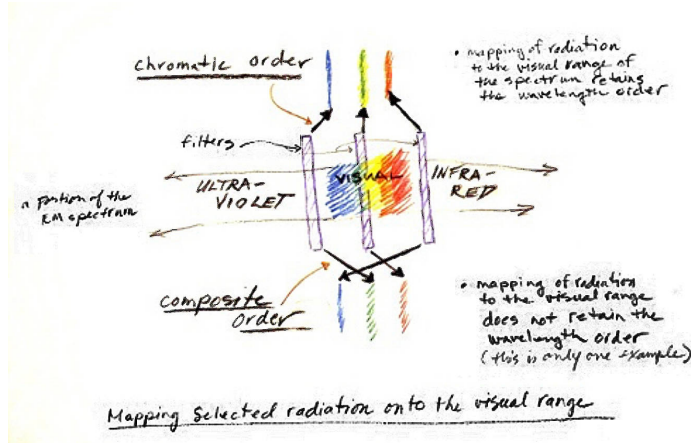 chromatic order
• mapping of radiation
to the visual range of
the spectrum retains
the wavelength order
filters
ULTRA-
VIOLET
VISUAL
INFRA-
RED
a portion of the
EM spectrum
composite
order
• mapping of radiation
to the visual range
does not retain the
wavelength order
(this is only one example)
Mapping selected radiation onto the visual range